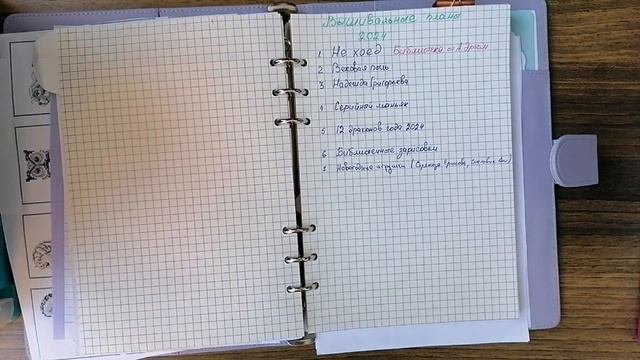 Вышивальные планы
2024
1 Не хоед Библиотека от А
2 Вековая пыль
3 Надежда Григорьева
4 Серийный маньяк
5 12 драконов года 2024
6 Библиотечные зарисовки
7 Новогодние игрушки (